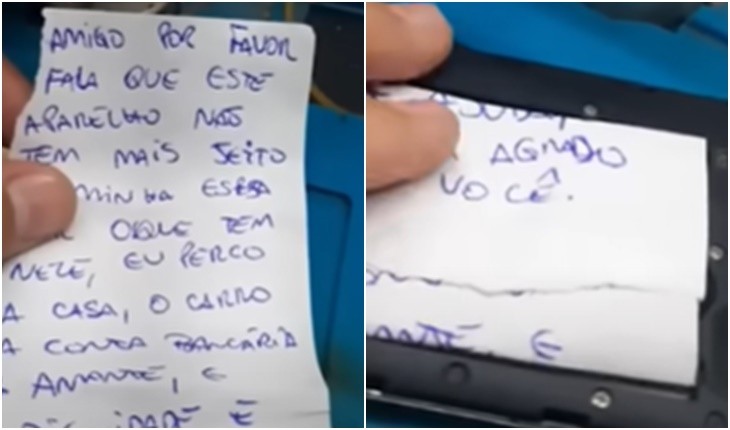 AMIGO POR FAVOR
FALA QUE ESTE
APARELHO NÃO
TEM MAIS JEITO
MINHA ESPOSA
OQUE TEM
NELE, EU PERCO
A CASA, O CARRO
A CONTA BANCÁRIA
AMANTE, E
IDADE E
AGRADO
VOCÊ.
E